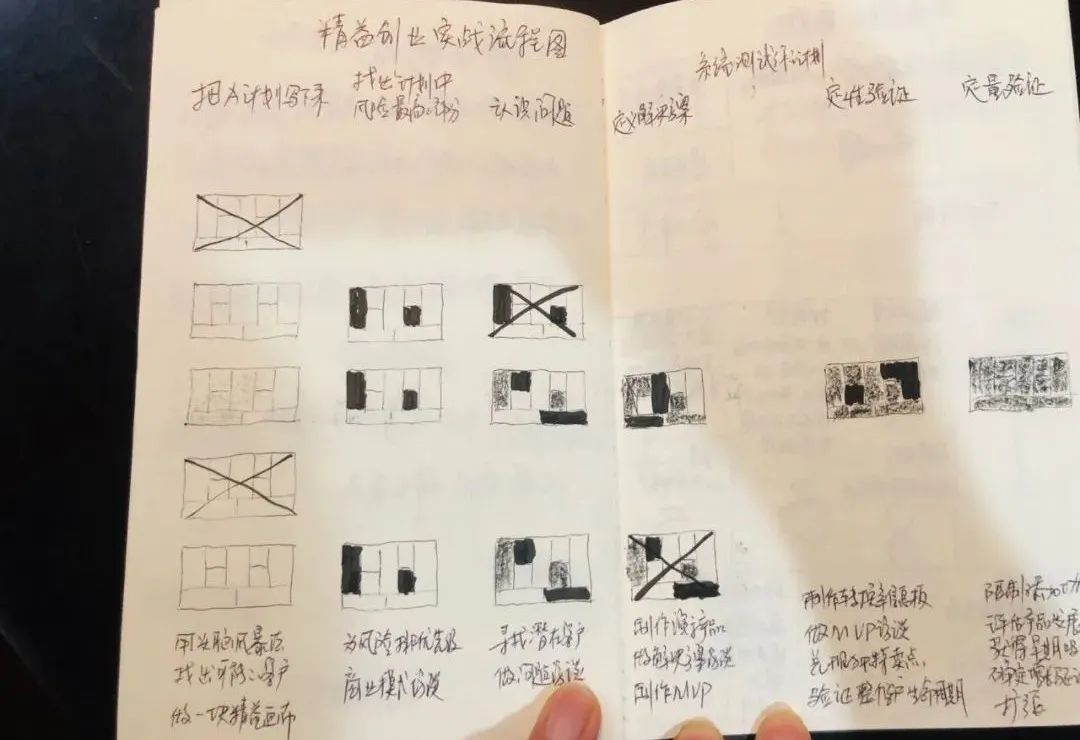 精益创业实战流程图
系统测试计划
把A计划写下来
找出计划中
风险最高的部分
认识问题
定义解决方案
定性验证
定量验证
用头脑风暴法
找出可能的客户
做一块精益画布
为风险排优先级
商业模式访谈
寻找潜在客户
做问题访谈
制作演示产品
做解决方案访谈
制作MVP
制作转换率面板
做MVP访谈
兑现独特卖点
验证整个客户生命周期
限制添加功
评估产品进展
获得早期
确定增长
扩张